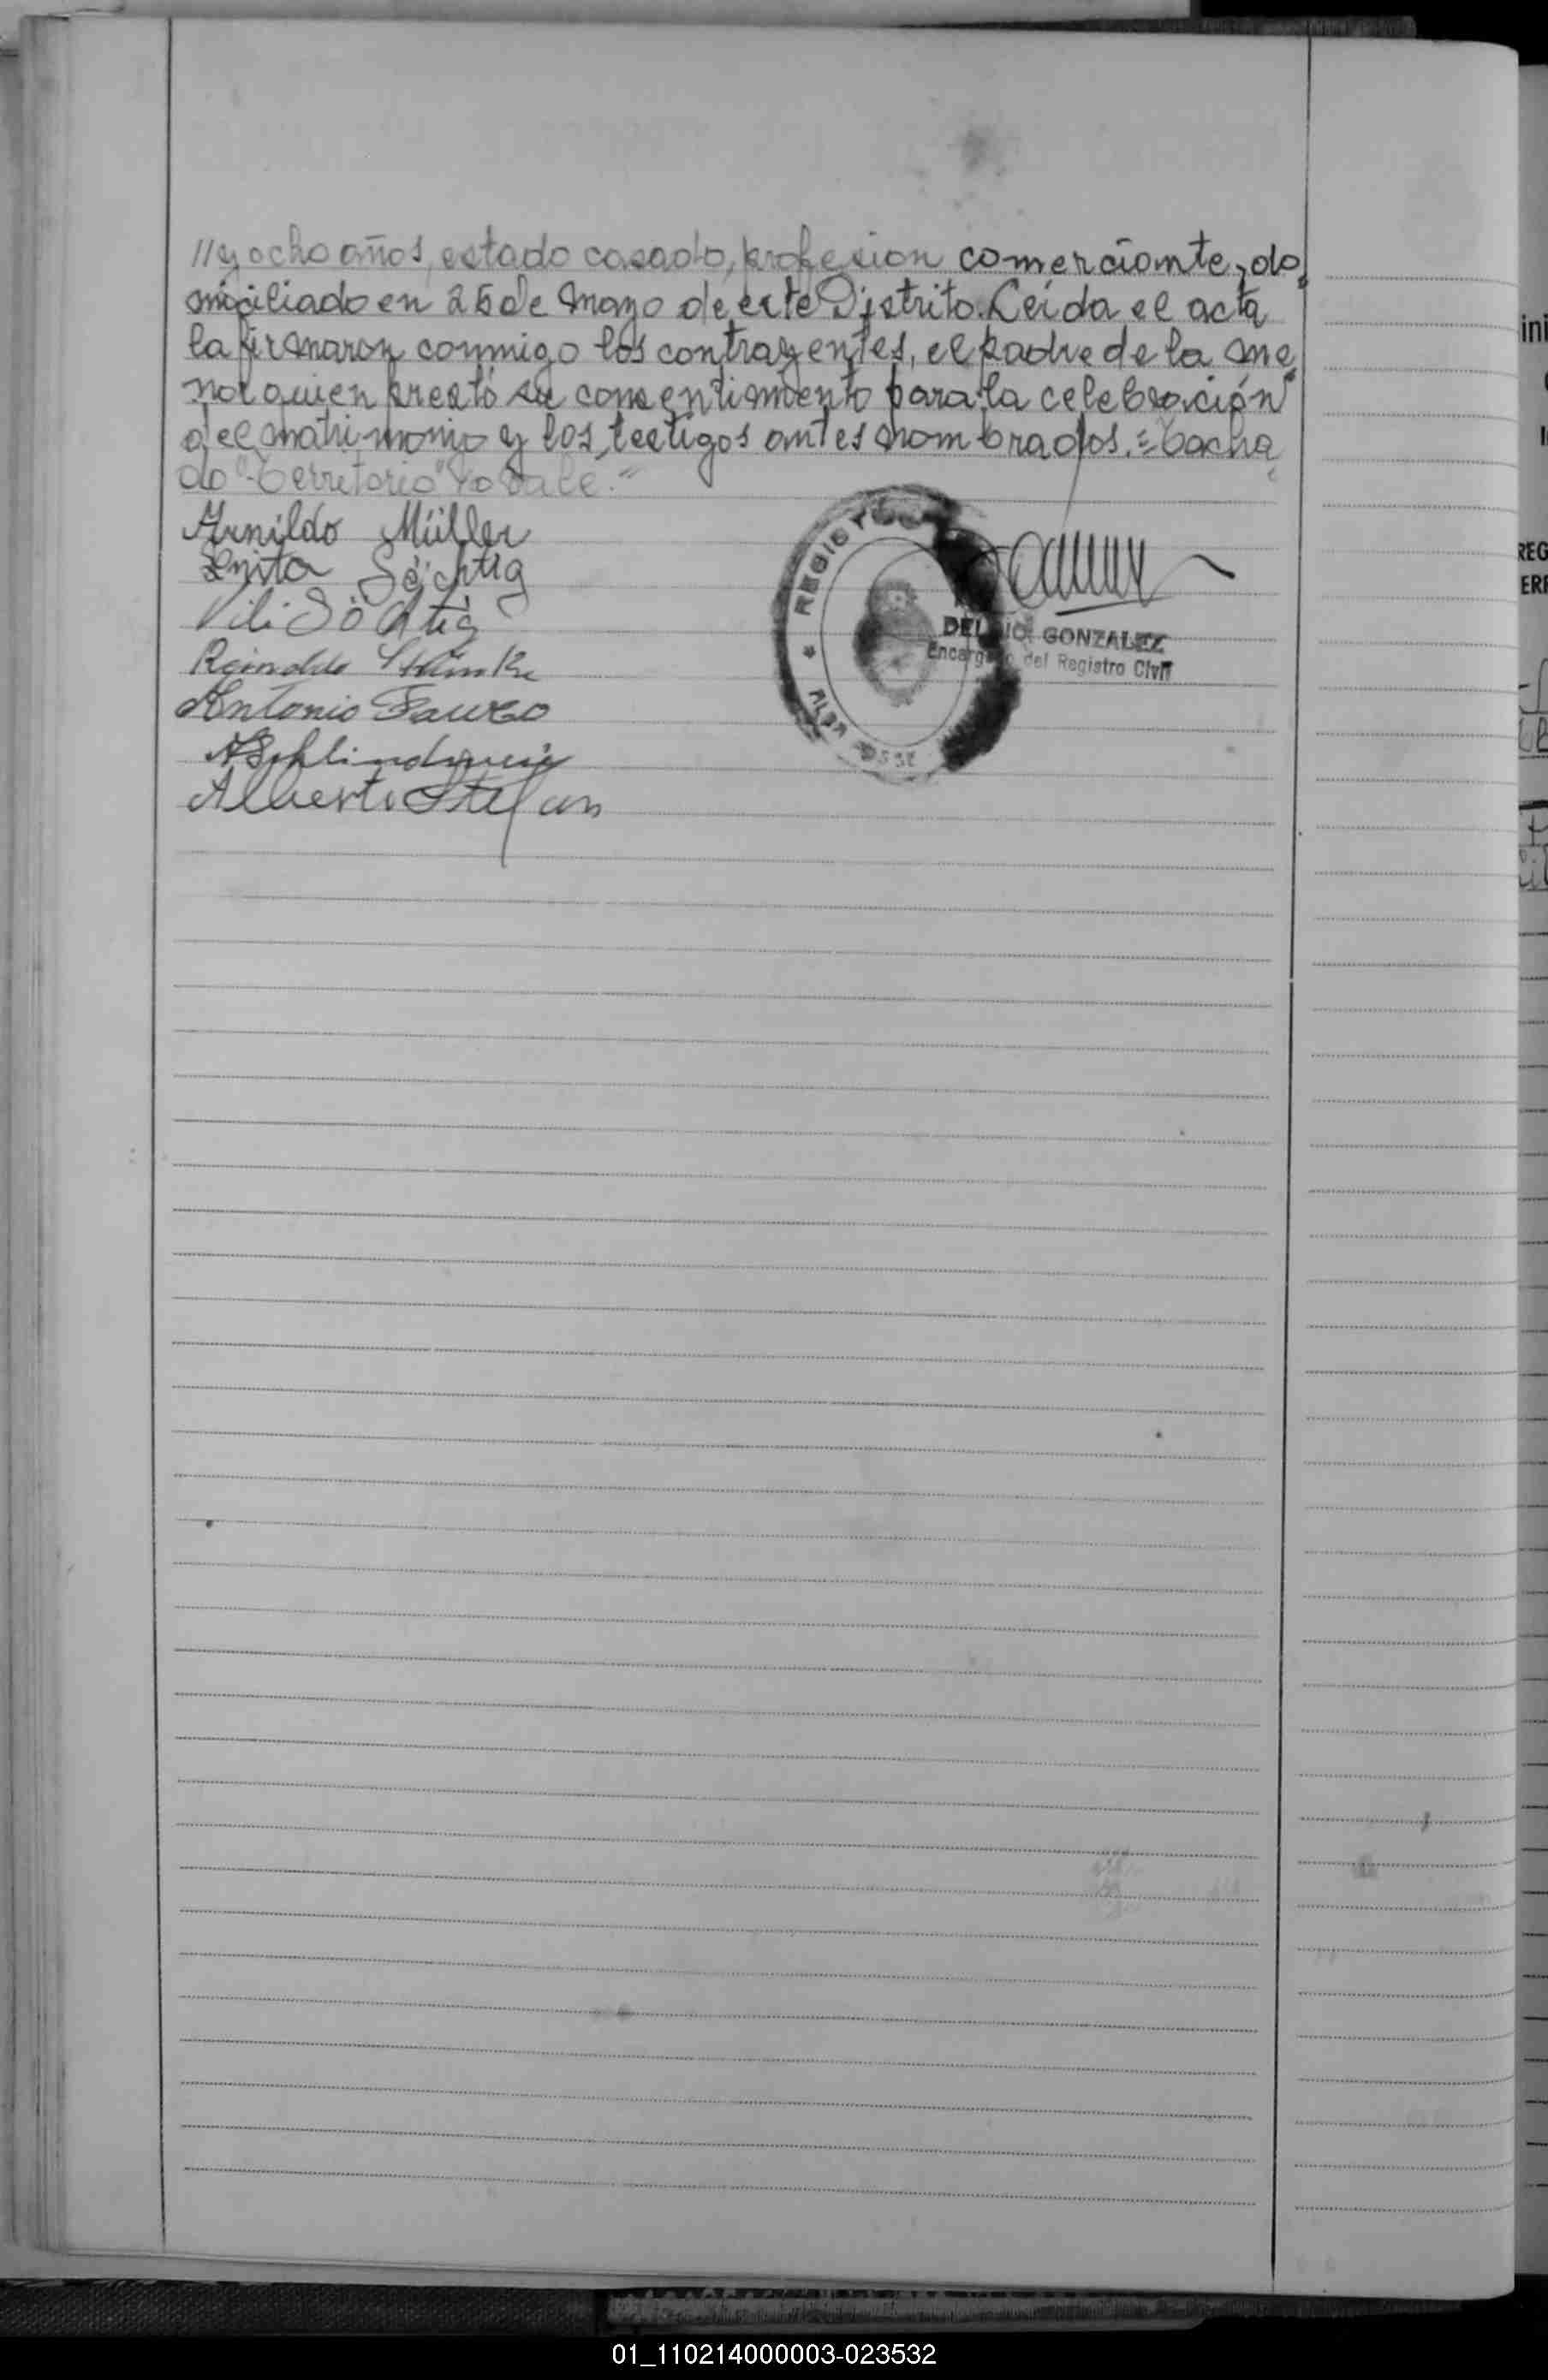 //y ocho años, estado casado, profesion comerciante, do
miciliado en 25 de Mayo de este Distrito. Leída el acta
la firmaron conmigo los contrayentes, el padre de la me
nor quien prestó su consentimiento para la celebración
del matrimonio y los testigos antes nombrados.= Tacha
do "Territorio" No Vale.=
Arnildo Müller
Senita Söchtig
Vili Söchtig
Reinoldo
Antonio
Alberto Stefan
REGISTRO
DELFIO GONZALEZ
Encargado del Registro Civil
ini
REG
ERR
01_110214000003-023532